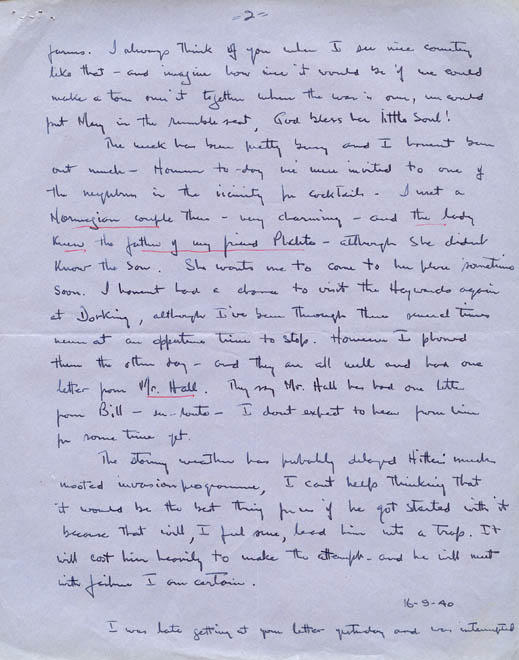 =2=
farms. I always think of you when I see nice country
like that - and imagine how nice it would be if we could
make a tour over it together when the war is over, we could
put May in the rumble seat, God bless her little Soul!
The week has been pretty busy and I havent been
out much - However to-day we were invited to one of
the neighbors in the vicinity for cocktails - I met a
Norwegian couple there - very charming - and the lady
knew the father of my friend - although she didnt
know the son. She wants me to come to her place sometime
soon. I havent had a chance to visit the Haywards again
at Dorking, although I've been through there several times
never at an opportune time to stop. However I phoned
them the other day - and they are all well and had one
letter from Mr. Hall. They say Mr. Hall has had one letter
from Bill - en-route - I dont expect to hear from him
for some time yet.
The stormy weather has probably delayed Hitler's much
mooted invasion programme, I cant help thinking that
it would be the best thing for us if he got started with it
because that will, I feel sure, lead him into a trap. It
will cost him heavily to make the attempt - and he will meet
with failure I am certain.
16-9-40
I was late getting at your letter yesterday and was interrupted